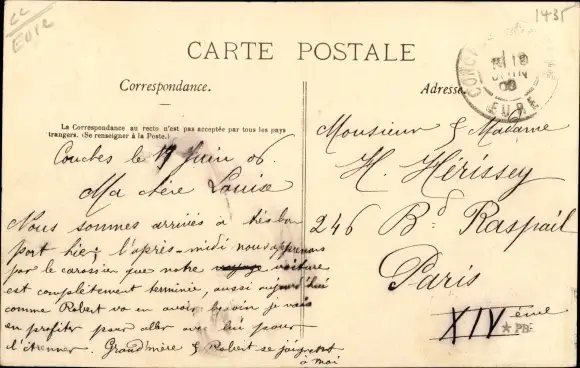 CL
EU12
1435
CARTE POSTALE
Correspondance.
Adresse
La Correspondance au recto n'est pas acceptée par tous les pays
trangers. (Se renseigner à la Poste.)
CONCHES
18
JUIN
06
EURE
Conches le 17 Juin 06.
Ma chère Louise
Nous sommes arrivés à très bon
port hier; l'après-midi nous apprenons
par le carossier que notre voyage voiture
est complètement terminée, aussi aujourd'hui
comme Robert va en avoir besoin je vais
en profiter pour aller avec lui pour
l'étrenner. Grand'mère & Robert se joignent
à moi
Monsieur & Madame
H. Hérissey
246 Bd Raspail
Paris
XIV ème
*PB*